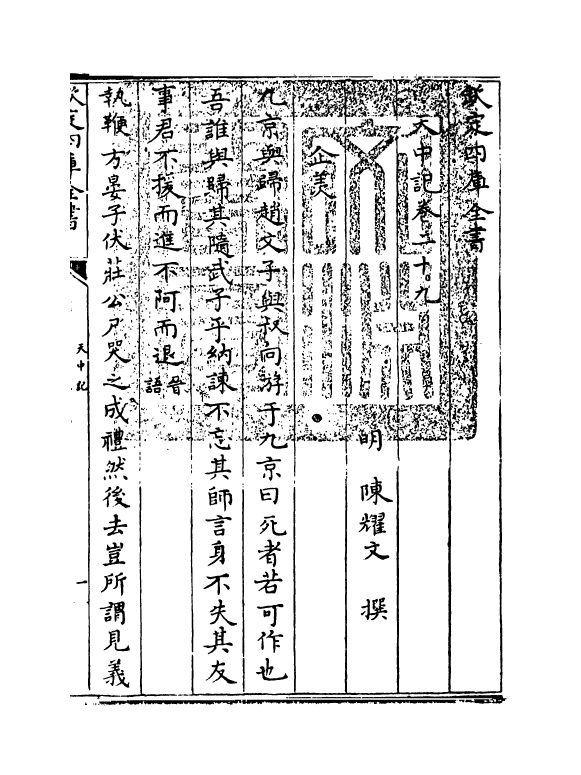 欽定四庫全書
天中記卷二十九
明 陳耀文 撰
企羡
九京與歸趙文子與叔向游于九京曰死者若可作也
吾誰與歸其隨武子乎納諫不忘其師言身不失其友
事君不援而進不阿而退晉語
執鞭方晏子伏莊公尸哭之成禮然後去豈所謂見義
欽定四庫全書
天中記
一